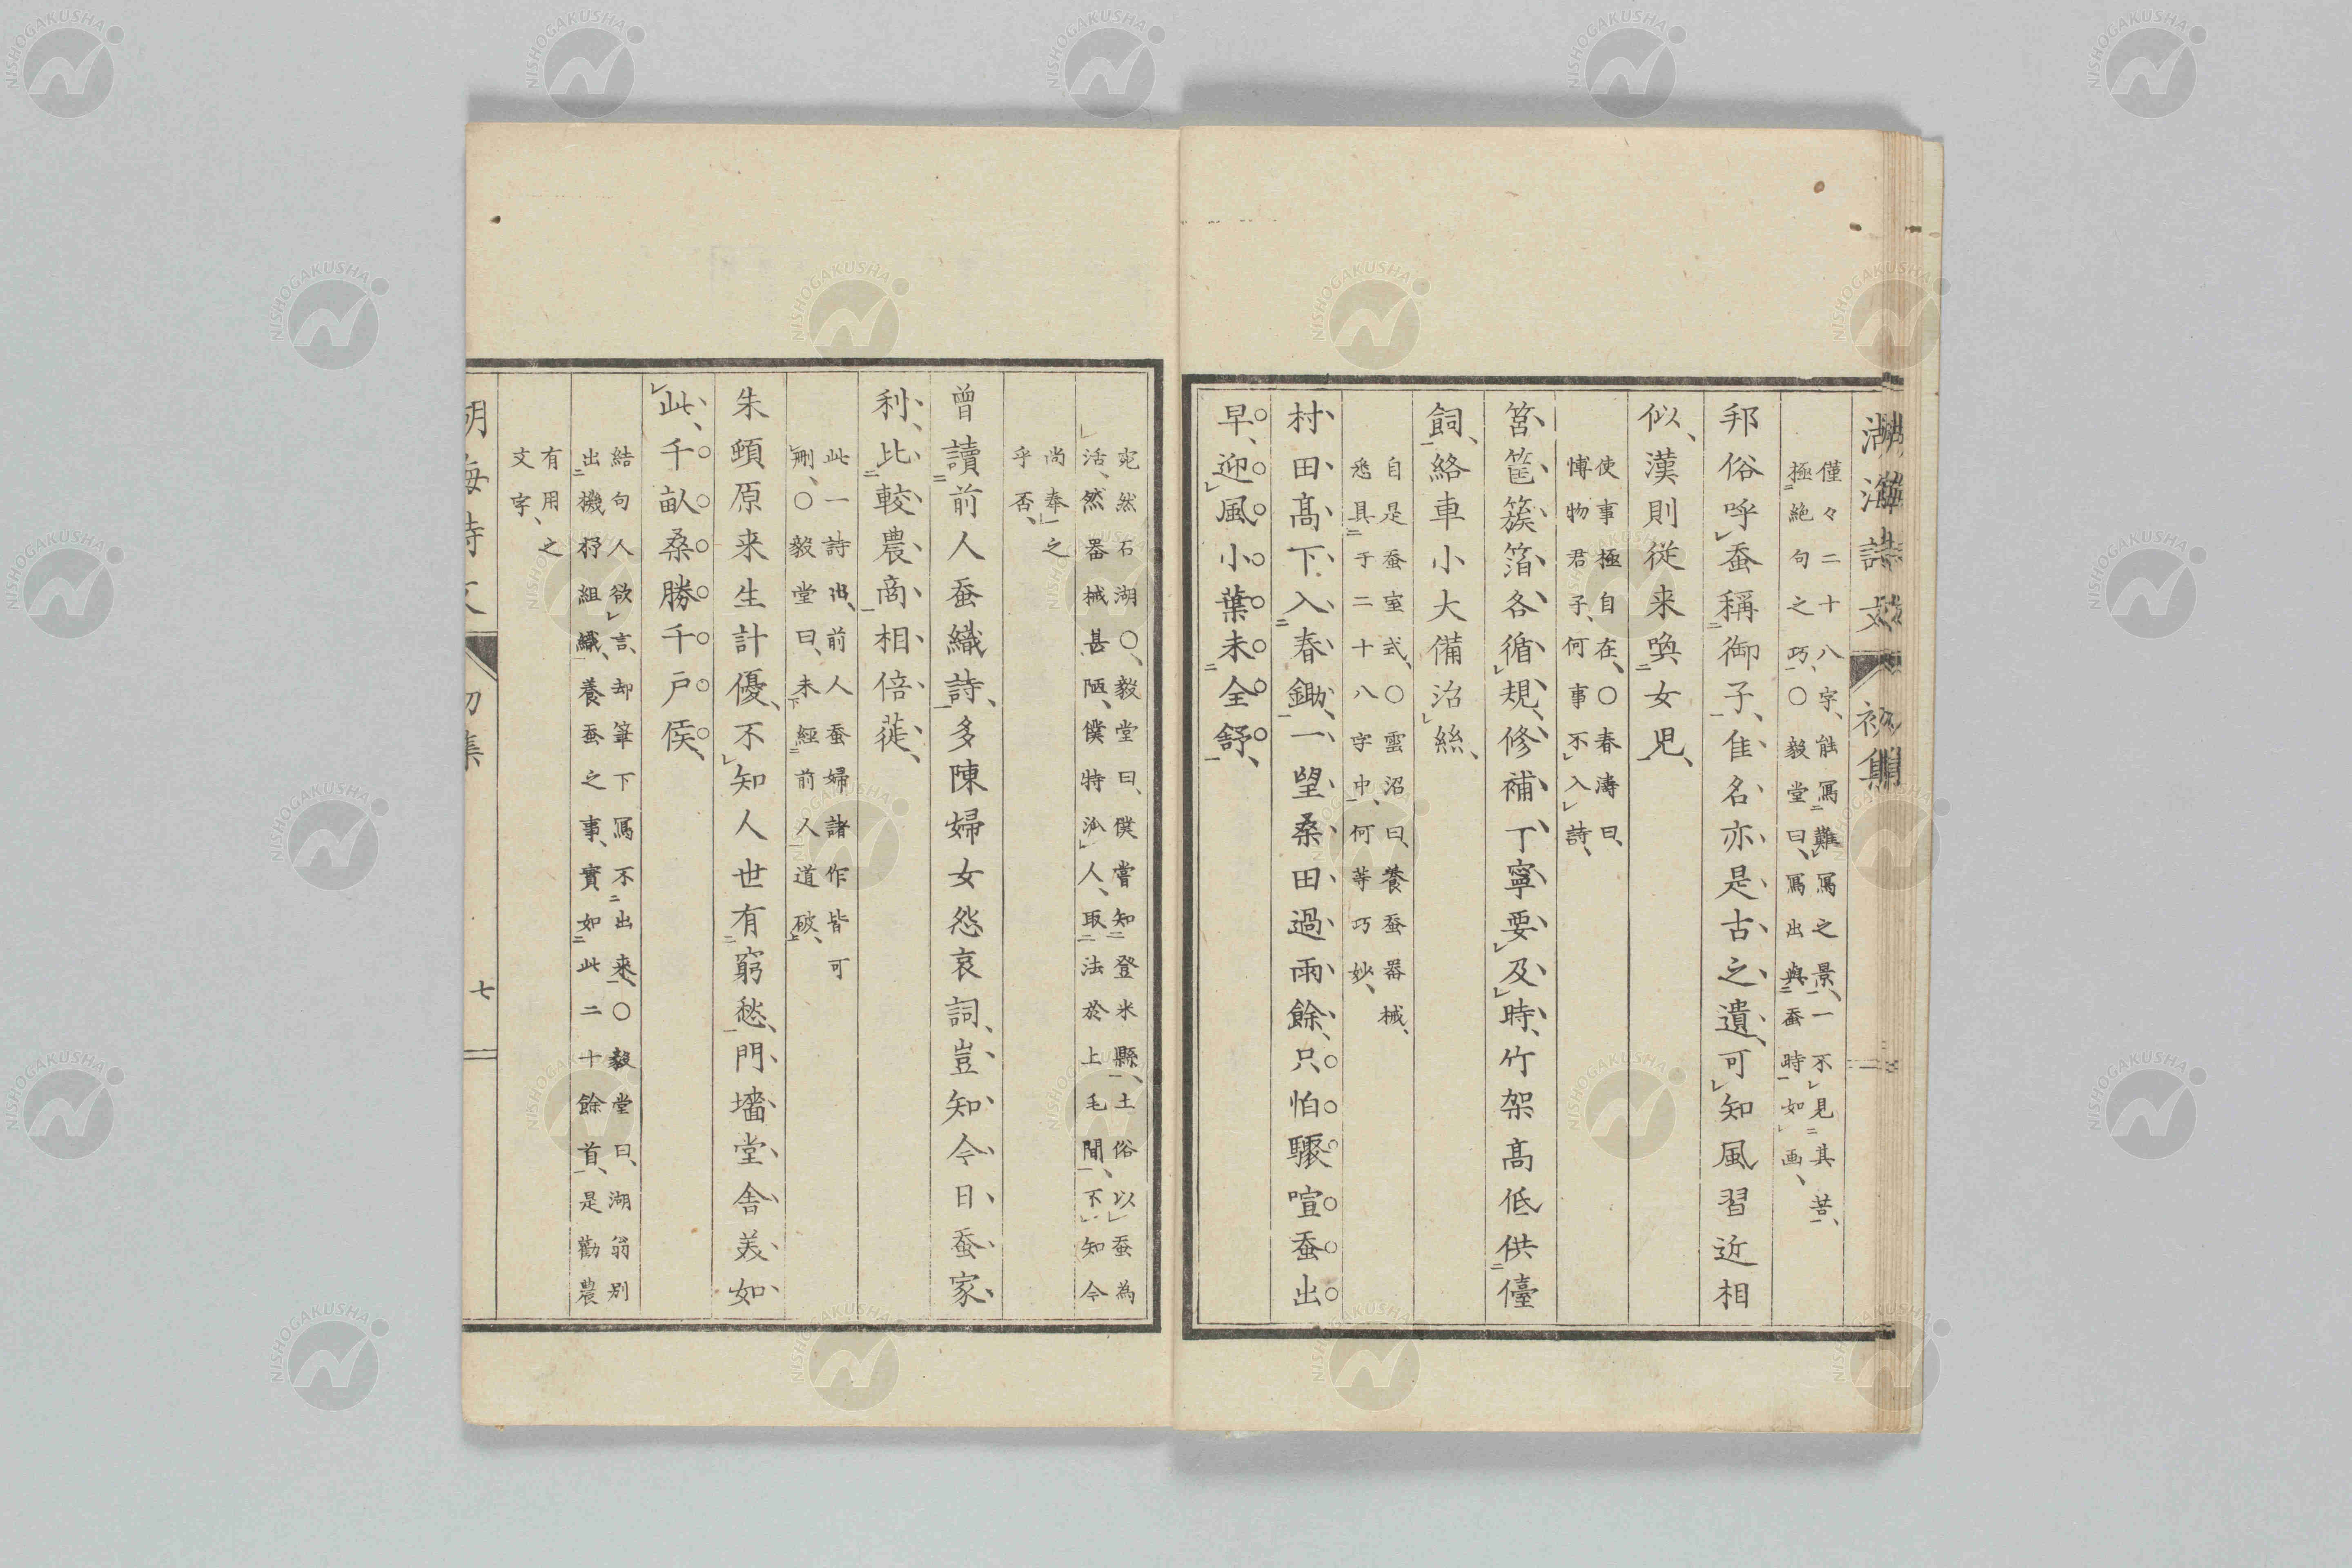 湖海詩文 初集
僅々二十八字、能寫難寫之景、一不見其苦、
極絶句之巧、○毅堂曰、寫出與蚕時如画、
邦俗呼蚕稱御子、佳名亦是古之遺、可知風習近相
似、漢則從来喚女児、
使事極自在、○春濤曰、
博物君子、何事不入詩、
筥筐簇箔各循規、修補丁寧要及時、竹架高低供儓
飼、絡車小大備治絲、
自是蚕室式、○雲沼曰、養蚕器械、
悉具于二十八字中、何等巧妙、
村田高下入春鋤、一望桑田過雨餘、只怕驟喧蚕出
早、迎風小葉未全舒、
宛然石湖○、毅堂曰、僕嘗知登米縣、土俗以蚕為
活、然器械甚陋、僕特沙人、取法於上毛間、不知今
尚奉之
乎否、
曽讀前人蚕織詩、多陳婦女怨哀詞、豈知今日蚕家
利、比較農商相倍蓰、
此一詩出、前人蚕婦諸作皆可
刪、○毅堂曰、未經前人道破、
朱頓原来生計優、不知人世有窮愁、門墻堂舎美如
此、千畝桑勝千戸侯、
結句人欲言、却筆下寫不出来、○毅堂曰、湖翁別
出機杼組織、養蚕之事、實如此二十餘首、是勸農
有用之
文字、
湖海詩文 初集 七